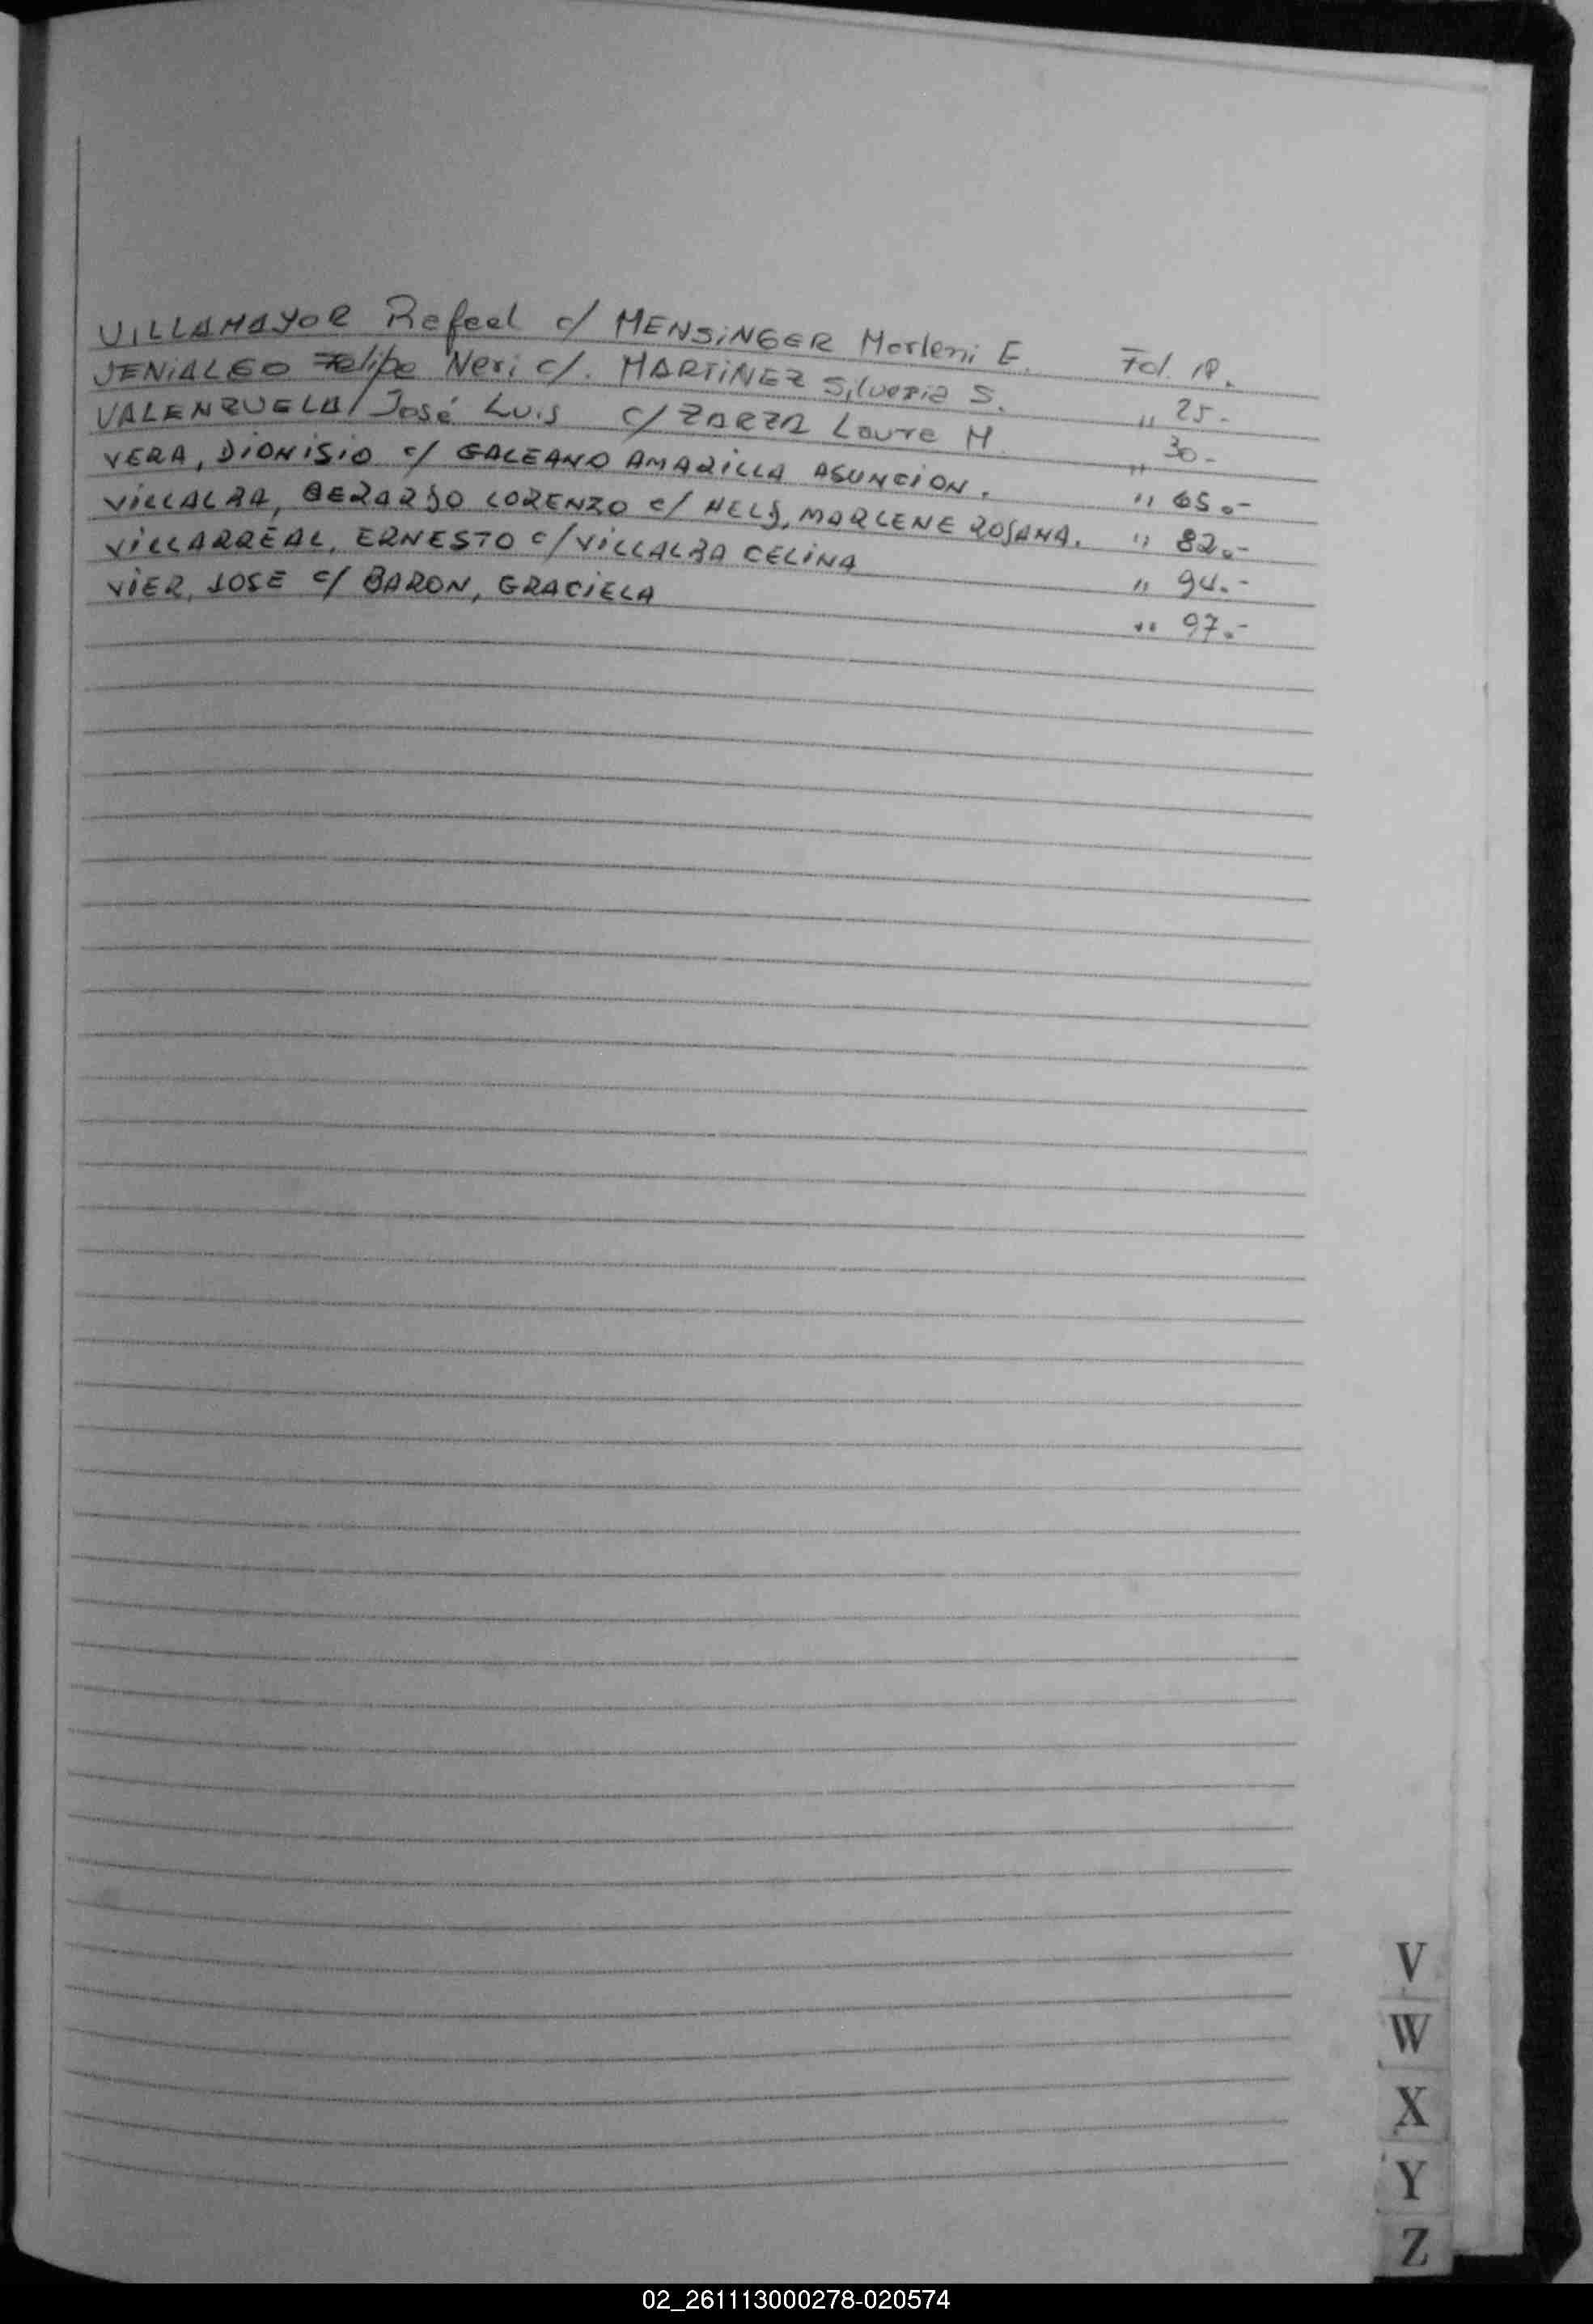 VILLAMAYOR Rafael c/ MENSINGER Marleni E. Fol.
VENIALGO Felipe Neri c/. MARTINEZ Silveria S. " 25.-
VALENZUELA José Luis c/ ZARZA Laura M. " 30.-
VERA, DIONISIO c/ GALEANO AMARILLA ASUNCION. " 65.-
VILLALBA, GERARDO LORENZO c/ MARLENE ROSANA. " 82.-
VILLARREAL, ERNESTO c/ VILLALBA CELINA " 94.-
VIER, JOSE c/ BARON, GRACIELA " 97.-
V
W
X
Y
Z
02_261113000278-020574